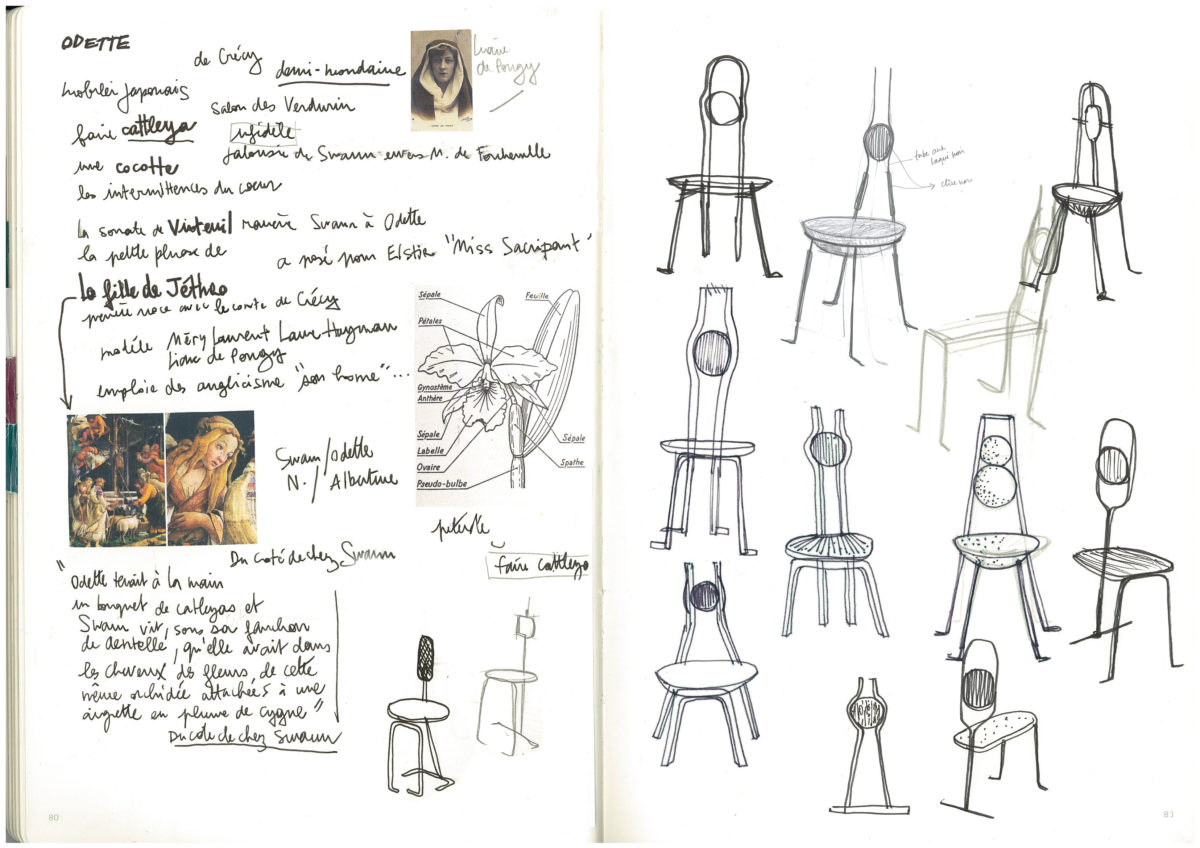 ODETTE
de Crécy
demi-mondaine
Liane
de Pougy
mobilier japonais
salon des Verdurin
faire cattleya
infidèle
jalousie de Swann envers M. de Forcheville
une cocotte
les intermittences du cœur
la sonate de Vinteuil
Swann à Odette
la petite phrase de
a posé pour Elstir "Miss Sacripant"
la fille de Jéthro
première noce avec le comte de Crécy
modèle Méry Laurent Laure Hayman
Liane de Pougy
emploie des anglicisme "son home"...
Sépale
Feuille
Pétales
Gynostème
Anthère
Sépale
Labelle
Ovaire
Pseudo-bulbe
Sépale
Spathe
Swann/Odette
N./Albertine
faire cattleya
Du côté de chez Swann
"Odette tenait à la main
un bouquet de catleyas et
Swann vit, sous sa fanchon
de dentelle, qu'elle avait dans
les cheveux des fleurs de cette
même orchidée attachées à une
aigrette en plume de cygne"
Du côté de chez Swann
laqué noir
80
83